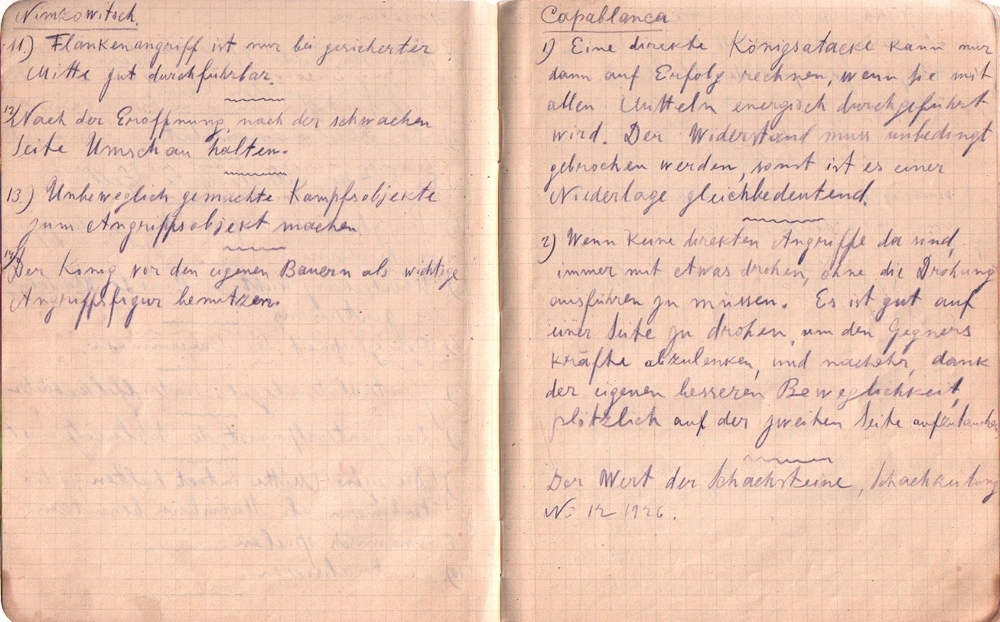 Nimzowitsch.
11.) Flankenangriff ist nur bei gesicherter
Mitte gut durchführbar.
12) Nach der Eröffnung, nach der schwachen
Seite Umschau halten.
13.) Unbeweglich gemachte Kampfsobjekte
zum Angriffsobjekt machen.
14) Der König vor den eigenen Bauern als wichtige
Angriffsfigur benützen.
Capablanca
1) Eine direkte Königsatacke kann nur
dann auf Erfolg rechnen, wenn sie mit
allen Mitteln energisch durchgeführt
wird. Der Widerstand muss unbedingt
gebrochen werden, sonst ist es einer
Niederlage gleichbedeutend.
2) Wenn keine direkten Angriffe da sind,
immer mit etwas drohen, ohne die Drohung
ausführen zu müssen. Es ist gut auf
einer Seite zu drohen, um den Gegners
kräfte abzulenken, und nachher, dank
der eigenen besseren Beweglichkeit,
plötzlich auf der zweiten Seite
Der Wert der Schachsteine, Schachzeitung
No 12 1926.